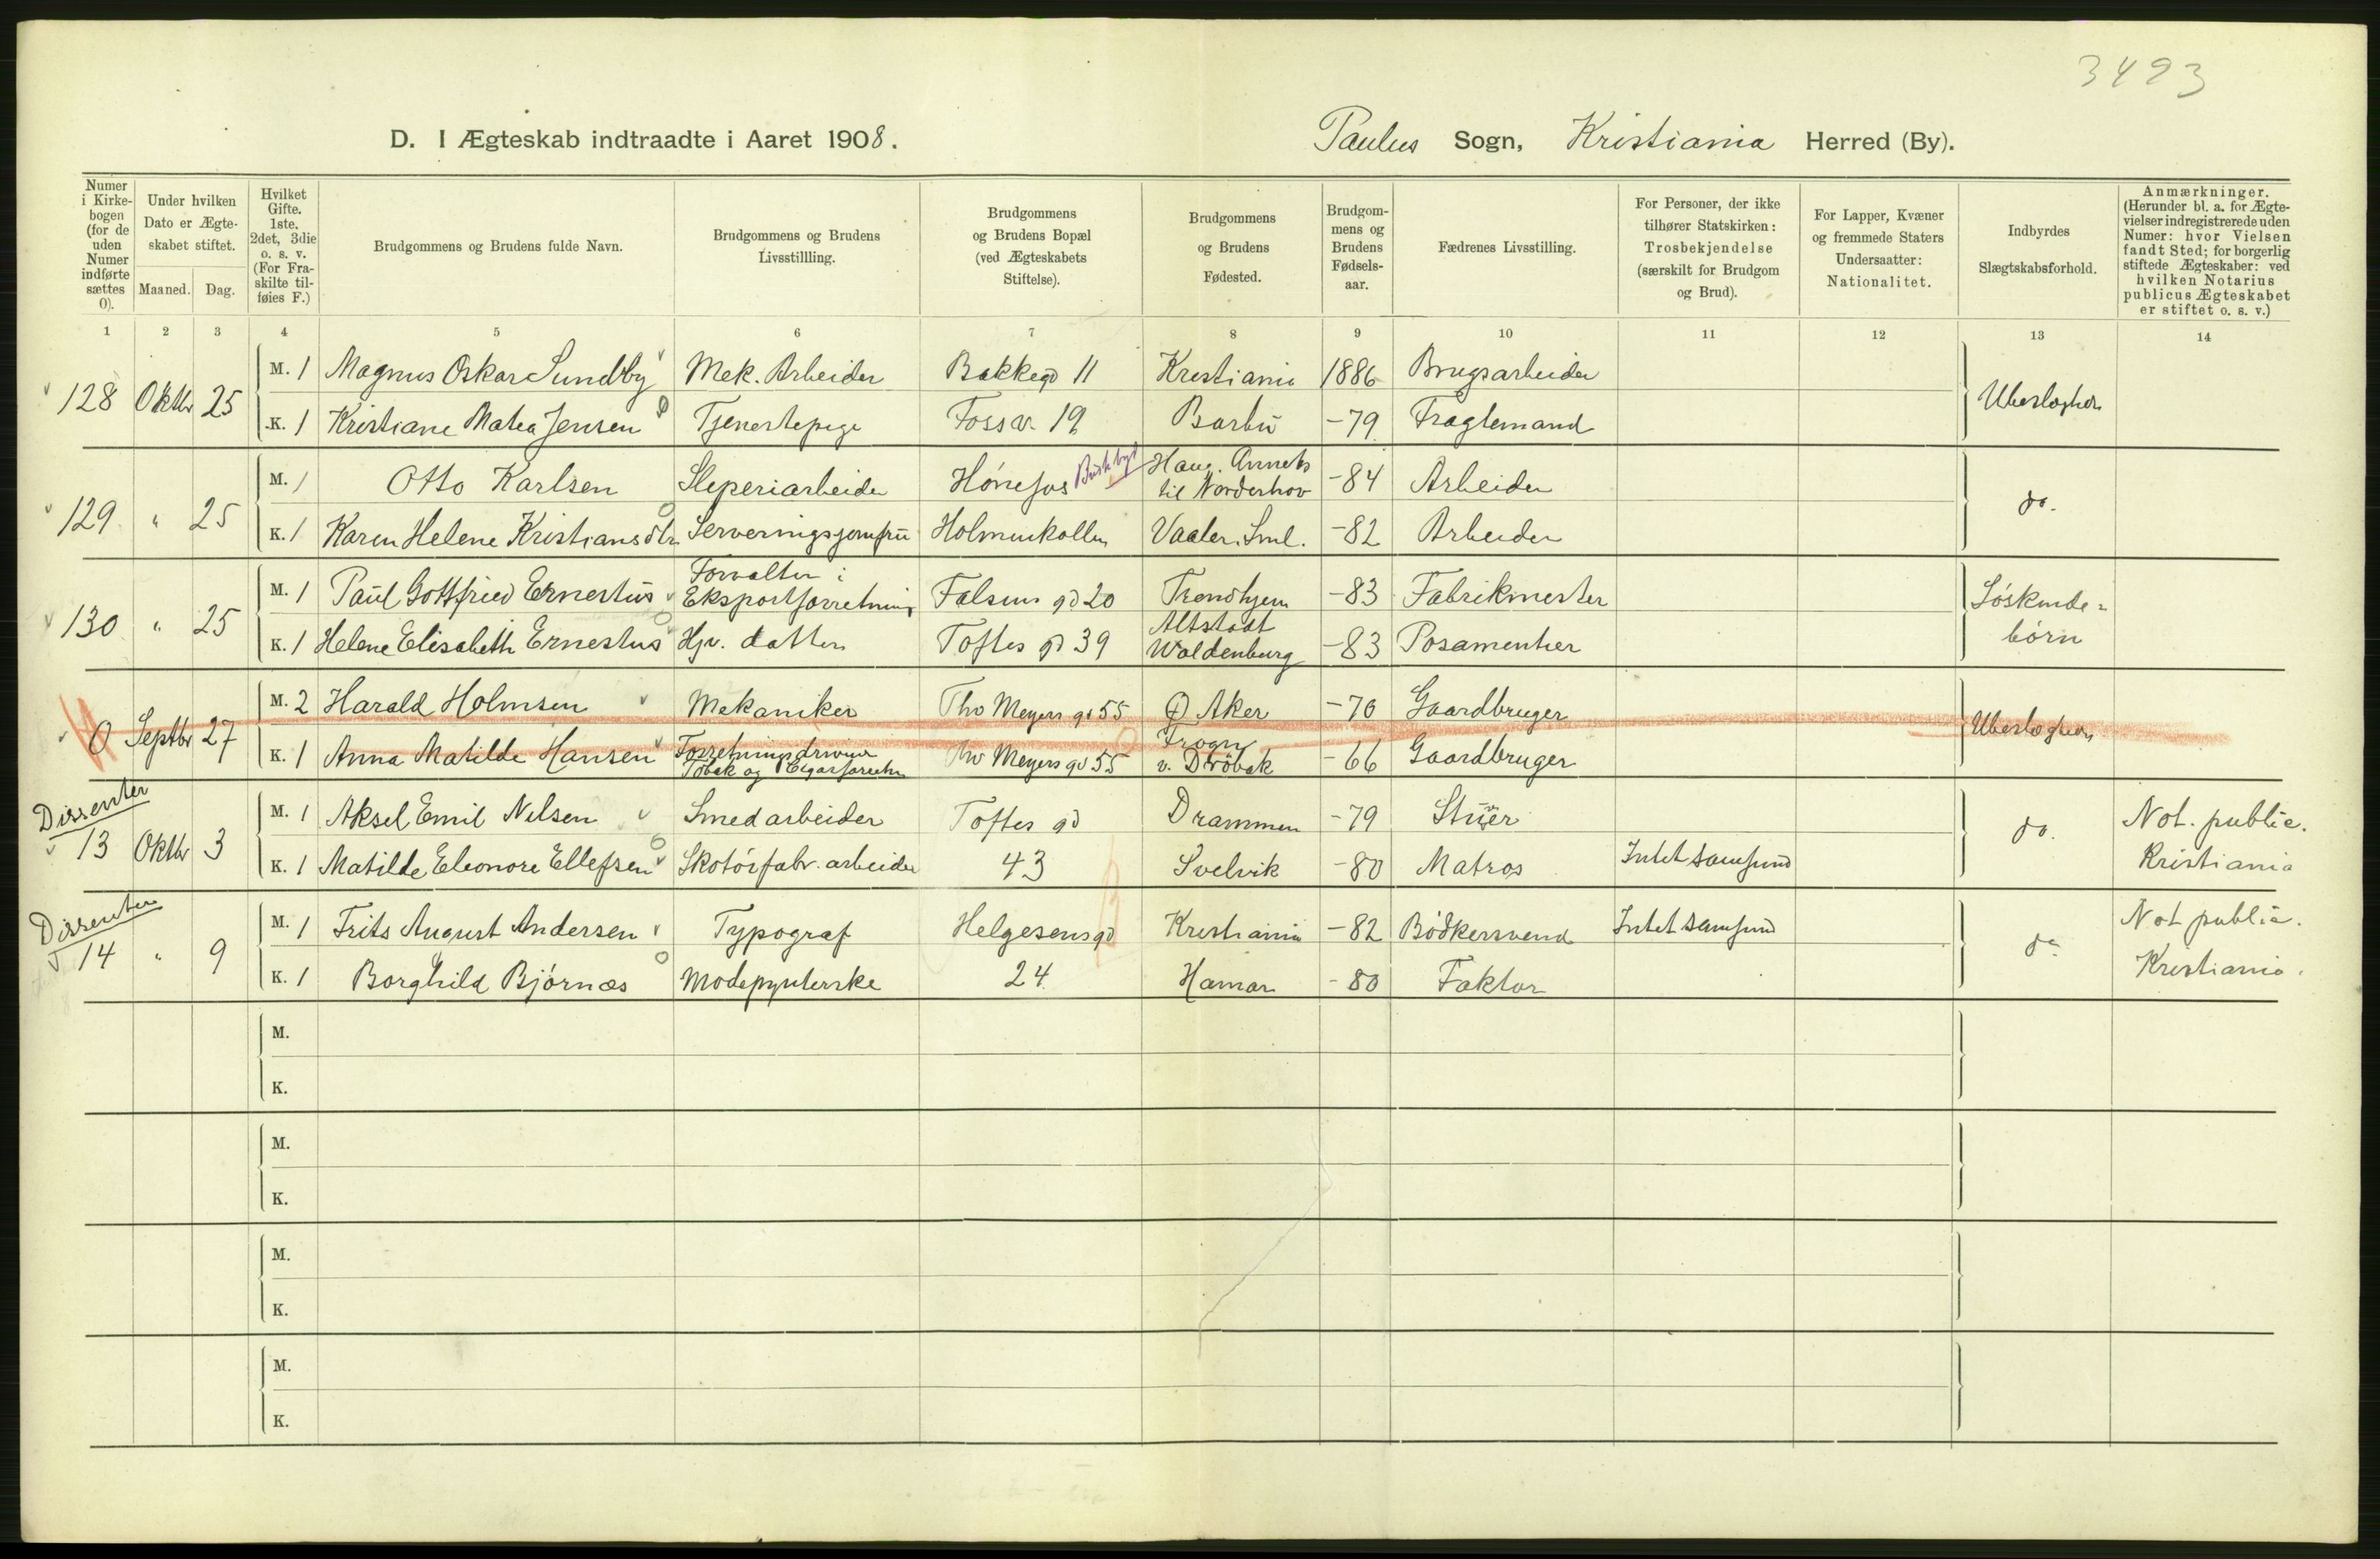 3493
D. I Ægteskab indtraadte i Aaret 1908. Paulus Sogn, Kristiania Herred (By).
Numer i Kirkebogen (for de uden Numer indførte sættes 0).
Under hvilken Dato er Ægteskabet stiftet.
Maaned. Dag.
Hvilket Gifte. 1ste, 2det, 3die o. s. v. (For Fraskilte tilføies F.)
Brudgommens og Brudens fulde Navn.
Brudgommens og Brudens Livsstillling.
Brudgommens og Brudens Bopæl (ved Ægteskabets Stiftelse).
Brudgommens og Brudens Fødested.
Brudgommens og Brudens Fødselsaar.
Fædrenes Livsstilling.
For Personer, der ikke tilhører Statskirken: Trosbekjendelse (særskilt for Brudgom og Brud).
For Lapper, Kvæner og fremmede Staters Undersaatter: Nationalitet.
Indbyrdes Slægtskabsforhold.
Anmærkninger. (Herunder bl. a. for Ægtevielser indregistrerede uden Numer: hvor Vielsen fandt Sted; for borgerlig stiftede Ægteskaber: ved hvilken Notarius publicus Ægteskabet er stiftet o. s. v.)
1 2 3 4 5 6 7 8 9 10 11 12 13 14
128 Oktbr 25 M. 1 Magnus Oskar Sundby Mek. Arbeider Bakkegd 11 Kristiania 1886 Brugsarbeider Ubeslægtet
K. 1 Kristiane Matea Jensen Tjenestepige Fossv. 19 Barbu -79 Fragtemand
129 " 25 M. 1 Otto Karlsen Sleperiarbeider Hønefos Buskbyd Haug. Anneks til Norderhov -84 Arbeider do.
K. 1 Karen Helene Kristiansdtr Serveringsjomfru Holmenkollen Vaaler. Sml. -82 Arbeider
130 " 25 M. 1 Paul Gottfried Ernestus Forvalter i Eksportforretning Falsens gd 20 Trondhjem -83 Fabrikmester Søskende=børn
K. 1 Helene Elisabeth Ernestus Hjv. datter Toftes gd 39 Altstadt Waldenburg -83 Posamentier
0 Septbr 27 M. 2 Harald Holmsen Mekaniker Thv Meyers gd 55 Ø Aker -70 Gaardbruger Ubeslægtet
K. 1 Anna Matilde Hansen Forretningsdriver Tobak og Cigarforretn Thv Meyers gd 55 Frogn v. Drøbak -66 Gaardbruger
Dissenter
13 Oktbr 3 M. 1 Aksel Emil Nilsen Smedarbeider Toftes gd Drammen -79 Stuer do. Not. public.
K. 1 Matilde Eleonore Ellefsen Skotøifabr. arbeider 43 Svelvik -80 Matros Intet samfund Kristiania
Dissenter
14 " 9 M. 1 Frits August Andersen Typograf Helgesensgd Kristiania -82 Bødkersvend Intet samfund do Not public.
K. 1 Borghild Bjørnæs Modepynterske 24 Hamar -80 Faktor Kristiania.
M.
K.
M.
K.
M.
K.
M.
K.